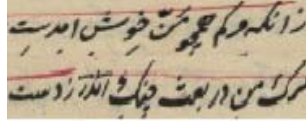 زانکه مرکم همچو منّ خوش امدست
مرک من در بعث چنک اندر زدست